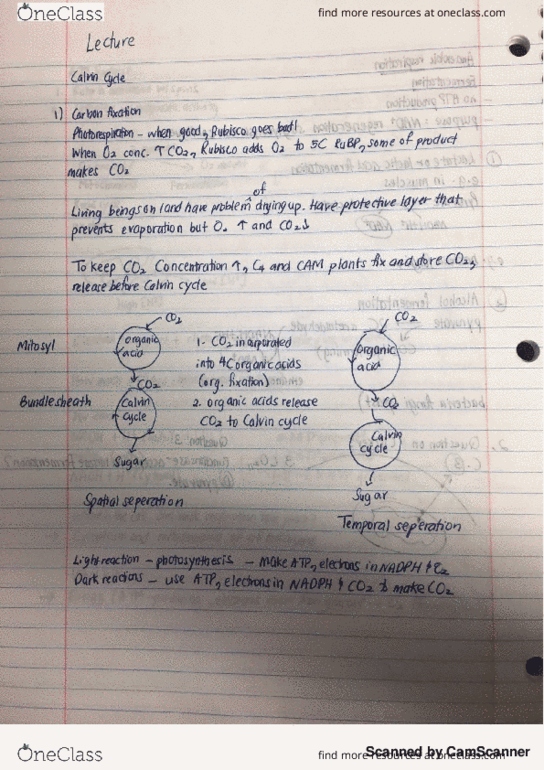 OneClass
find more resources at oneclass.com
Lecture
Calvin Cycle
1) Carbon fixation
Photorespiration - when good, Rubisco goes bad!
When O2 conc. ↑ CO2, Rubisco adds O2 to 5C RuBP, some of product
makes CO2
Living beings on land have problem of drying up. Have protective layer that
prevents evaporation but O2 ↑ and CO2 ↓
To keep CO2 Concentration ↑, C4 and CAM plants fix and store CO2,
release before Calvin cycle
CO2
CO2
Mitosyl
organic
acid
1- CO2 incorprated
into 4C organic acids
(org. fixation)
organic
acid
CO2
CO2
Bundlesheath
Calvin
cycle
2. organic acids release
CO2 to Calvin cycle
Calvin
cycle
Sugar
Sugar
Spatial seperation
Temporal seperation
Light reaction - photosynthesis - make ATP, electrons in NADPH &
Dark reactions - use ATP, electrons in NADPH & CO2 to make CO2
OneClass
find more resources at oneclass.com
Scanned by CamScanner